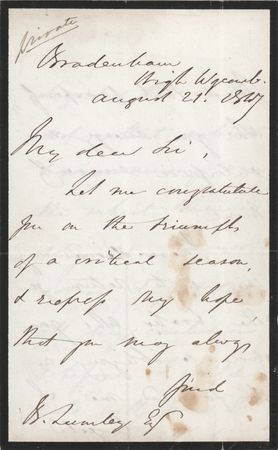 private
Bradenham
High Wycomb.
August 21. 1847
My dear Sir,
Let me congratulate
you on the triumphs
of a critical season,
& express my hope
that you may always
find
B. Lumley Esq